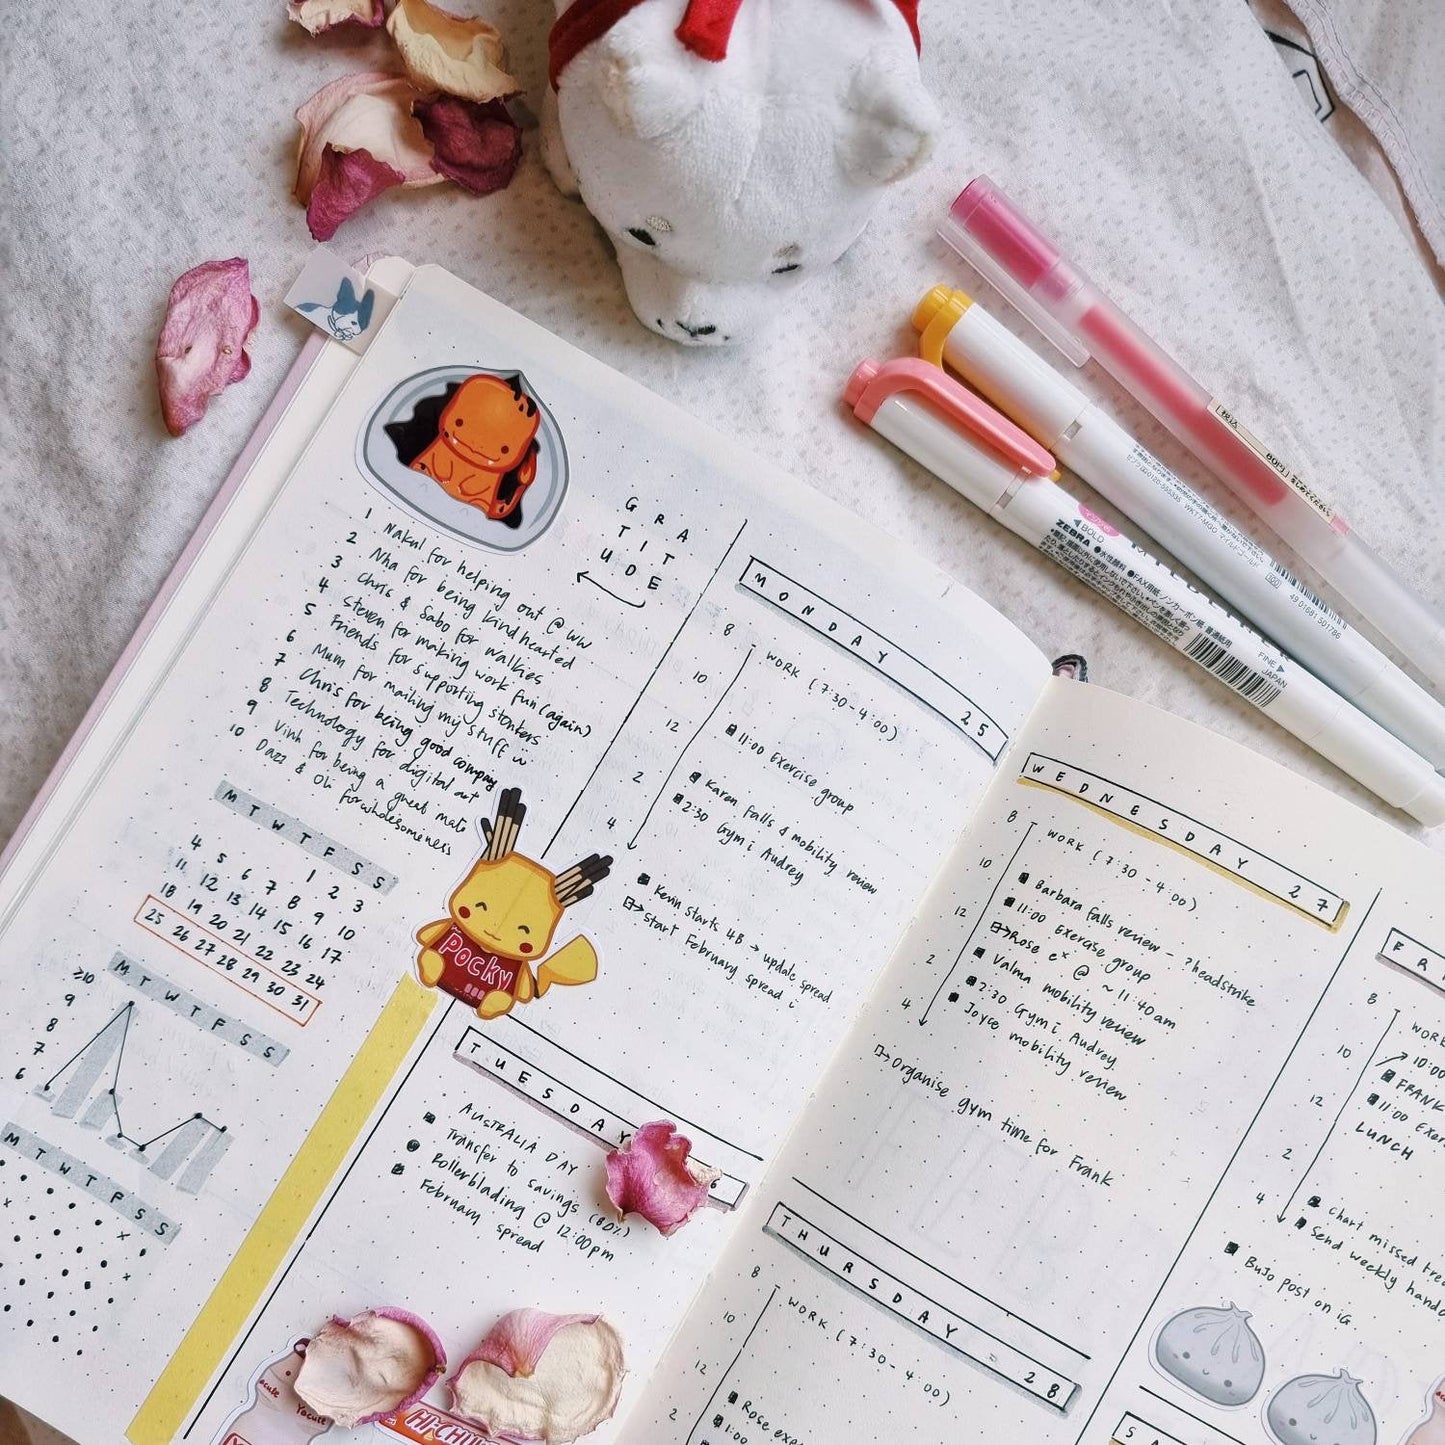 G R A
T I T
U D E
1 Nakul for helping out @ WW
2 Nha for being kindhearted
3 Chris & Sabo for walkies
4 Steven for making work fun (again)
5 Friends for supporting stonkers
6 Mum for mailing my stuff
7 Chris for being good company
8 Technology for digital art
9 Vinh for being a great mate
10 Dazz & Oli for wholesomeness
M T W T F S S
1 2 3
4 5 6 7 8 9 10
11 12 13 14 15 16 17
18 19 20 21 22 23 24
25 26 27 28 29 30 31
M T W T F S S
≥10
9
8
7
6
M T W T F S S
POCKY
MONDAY 25
8
10
12
2
4
WORK (7:30-4:00)
11:00 Exercise group
Karen falls & mobility review
2:30 Gym c Audrey
Kevin starts 4B → update spread
Start February spread
TUESDAY 6
AUSTRALIA DAY
Transfer to savings (80%)
Rollerblading @ 12:00pm
February spread
acute
Yacult
HI-CHEW
WEDNESDAY 27
8
10
12
2
4
WORK (7:30-4:00)
Barbara falls review - ?headstrike
11:00 Exercise group
Rose ex @ ~11:40am
Valma mobility review
2:30 Gym c Audrey
Joyce mobility review
Organise gym time for Frank
THURSDAY = 28
8
10
12
2
WORK (7:30-4:00)
Rose exe
1:00
FRI
8
10
12
2
4
WORK
10:00
FRANK
11:00 Exer
LUNCH
Chart missed trea
Send weekly hando
BuJo post on iG
SA
税込
BOLD
ZEBRA
FINE
JAPAN
WKT7-MGO マイルドゴールド
49 01681 501786